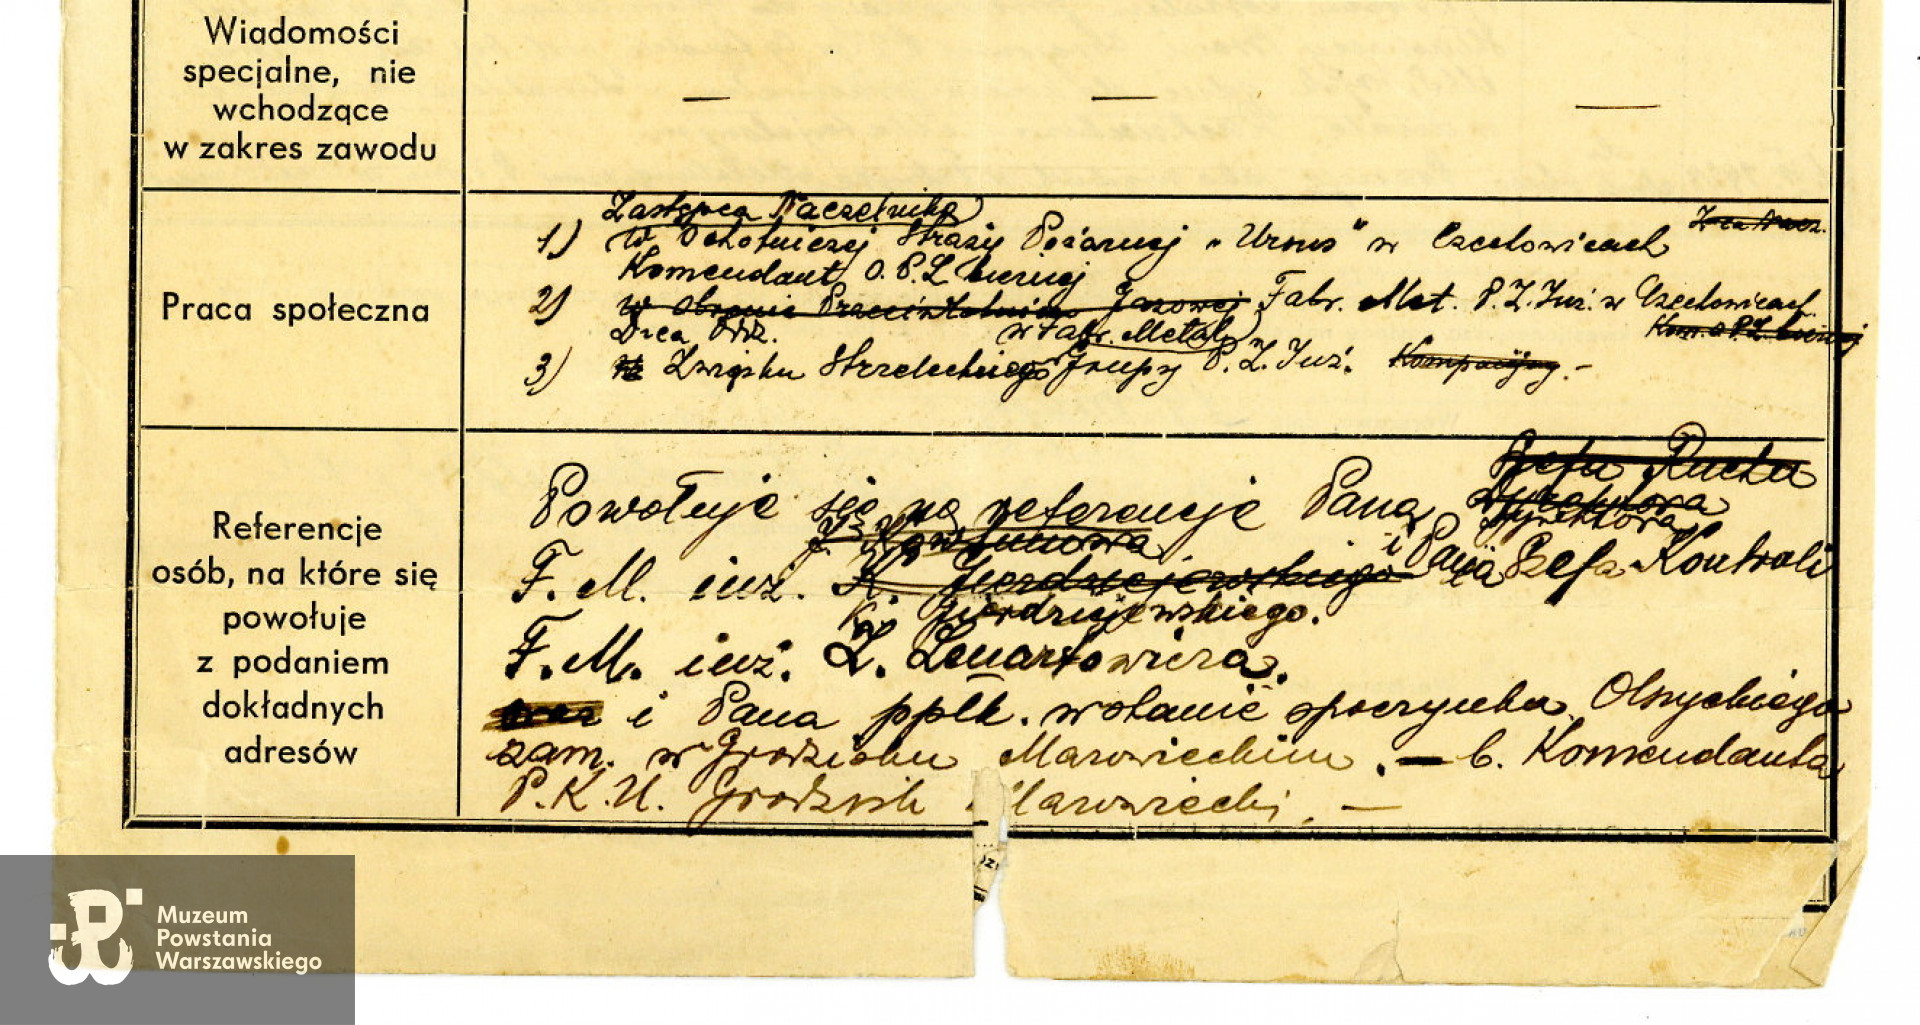 Wiadomości
specjalne, nie
wchodzące
w zakres zawodu
— — —
Praca społeczna
Zastępca Naczelnika
1) w Ochotniczej Straży Pożarnej „Ursus" w Czechowicach
Komendant O.P.L. biernej
2) w Obronie Przeciwlotniczo Gazowej Fabr. Met. P.Z.Inż. w Czechowicach.
Kom. O.P.L. biernej
D-ca Ork. w Fabr. Metal.
3) Związku Strzeleckiego Grupy P.Z.Inż. Kompanijny.-
Referencje
osób, na które się
powołuje
z podaniem
dokładnych
adresów
Szefa Ruchu
Powołuję się na referencje Pana Dyrektora
Dyrektora
F.M. inż. K. Gierdziejewskiego i Pana Szefa Kontroli
K. Gierdziejewskiego.
F.M. inż. Z. Lenartowicza.
oraz i Pana ppłk. w stanie spoczynku Olszyckiego
zam. w Grodzisku Mazowieckim. — b. Komendanta
P.K.U. Grodzisk Mazowiecki. —
Muzeum
Powstania
Warszawskiego